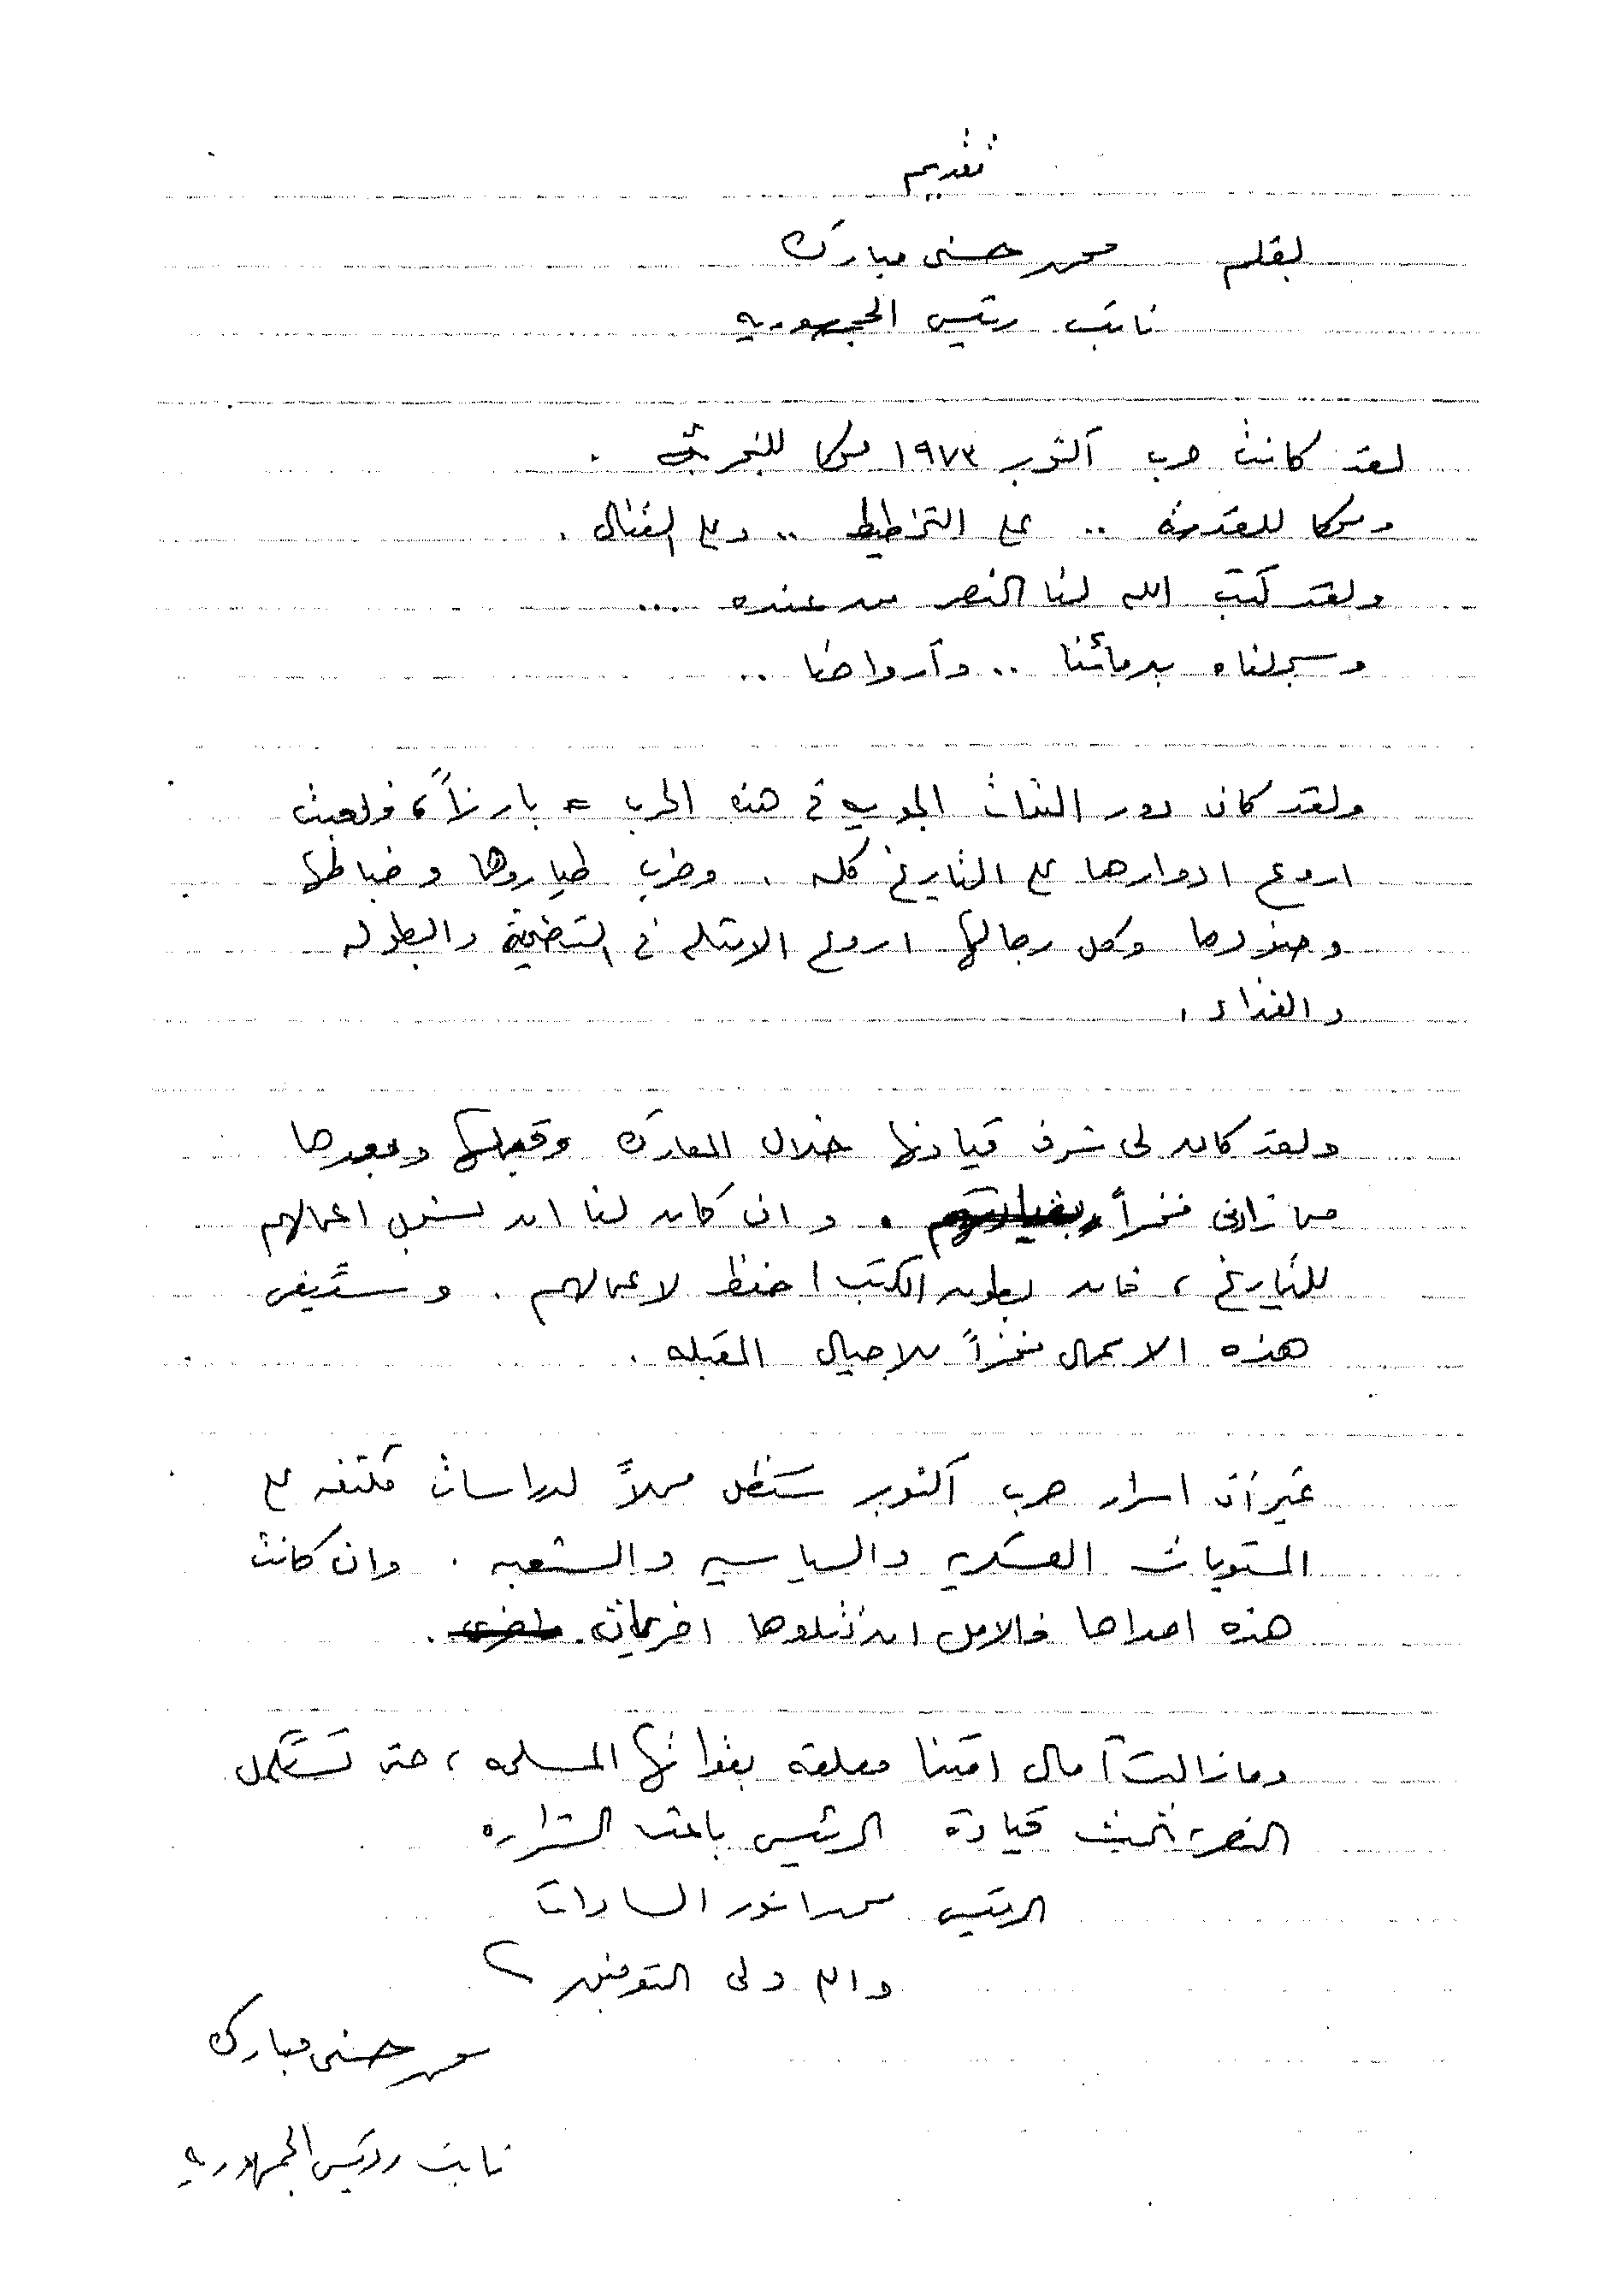 تقديم
بقلم محمد حسنى مبارك
نائب رئيس الجمهوريه
لقد كانت حرب أكتوبر ١٩٧٣ محكا للتجربة .
ومحكا للقدرة .. على التخطيط .. وعلى القتال .
ولقد كتب الله لنا النصر من عنده ...
وسجلناه بدمائنا .. وأرواحنا ..
ولقد كان دور القوات الجويه فى هذه الحرب بارزاً ، ولعبت
اروع ادوارها على التاريخ كله . وضرب طياروها وضباطها
وجنودها وكل رجالها اروع الامثله فى التضحية والبطوله
والفداء .
ولقد كان لى شرف قيادتها خلال المعارك وقبلها وبعدها
مما زادنى فخراً . وان كان لنا ان نسجل اعمالهم
للتاريخ ، فان بطون الكتب احفظ لاعمالهم . وستبقى
هذه الاعمال فخراً للاجيال المقبله .
غير أن اسرار حرب أكتوبر ستظل مجالاً لدراسات مكثفه على
المستويات العسكريه والسياسيه والشعبيه . وان كانت
هذه احداها فالامل ان تتلوها اخريات .
ومازالت آمال امتنا معلقه بقواتها المسلحه ، حتى تستكمل
النصر تحت قيادة الرئيس باعث الشراره
الرئيس محمد انور السادات
والله ولى التوفيق
محمد حسنى مبارك
نائب رئيس الجمهوريه